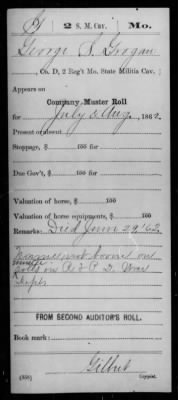 G | 2 S. M. Cav. | Mo.
George S. Grogan
, Co. D, 2 Reg't Mo. State Militia Cav.
Appears on
Company Muster Roll
for July & Aug, 1862.
Present or absent
Stoppage, $ 100 for
Due Gov't, $ 100 for
Valuation of horse, $ 100
Valuation of horse equipments, $ 100
Remarks: Died June 29 '62
Name not borne on
muster
rolls on R. & P. D. War
Dept.
FROM SECOND AUDITOR'S ROLL.
Book mark:
Gilbut
(858) Copyist.